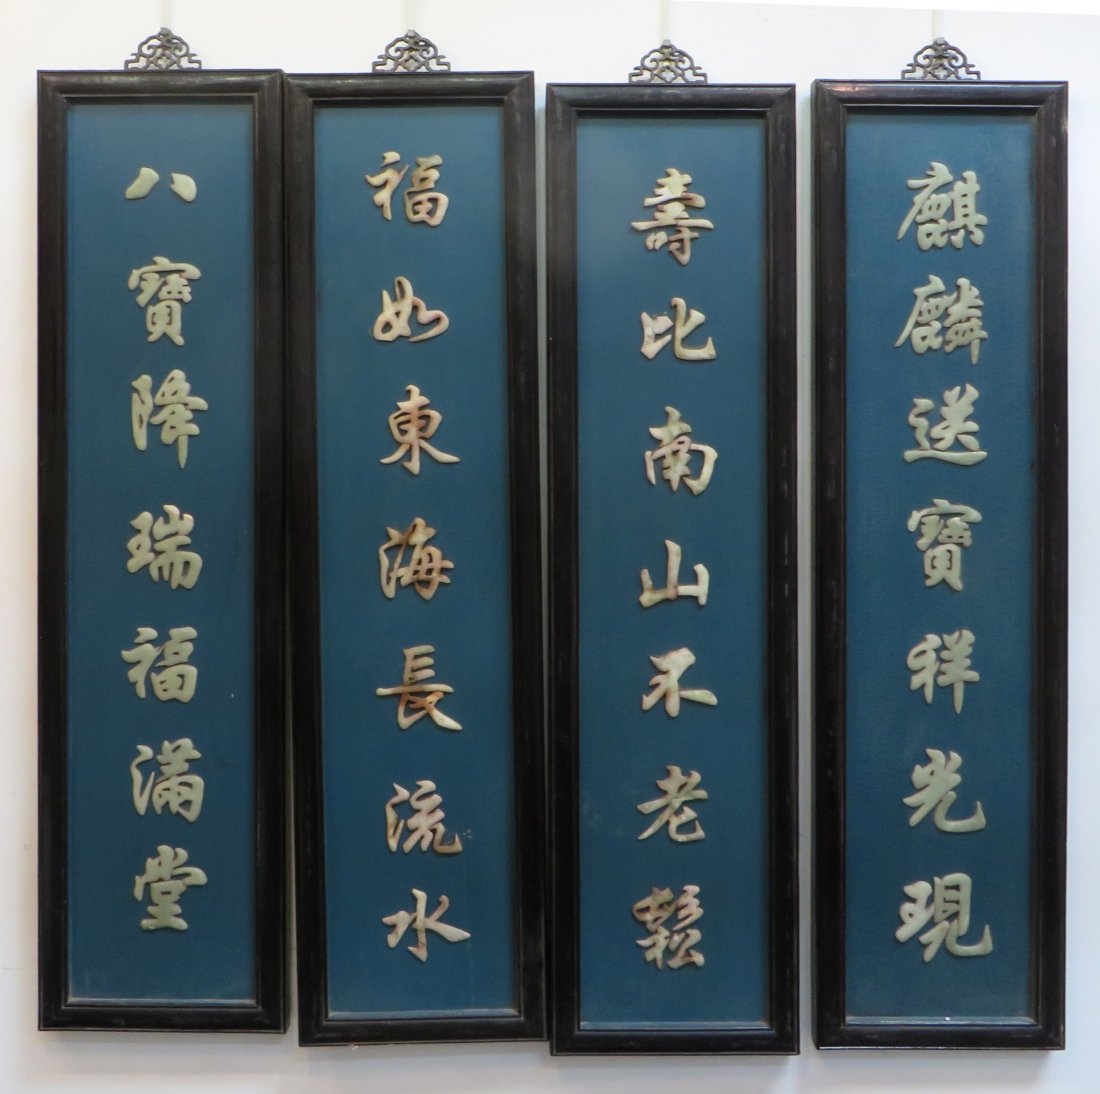 麒麟送寶祥光現
壽比南山不老鬆
福如東海長流水
八寶降瑞福滿堂